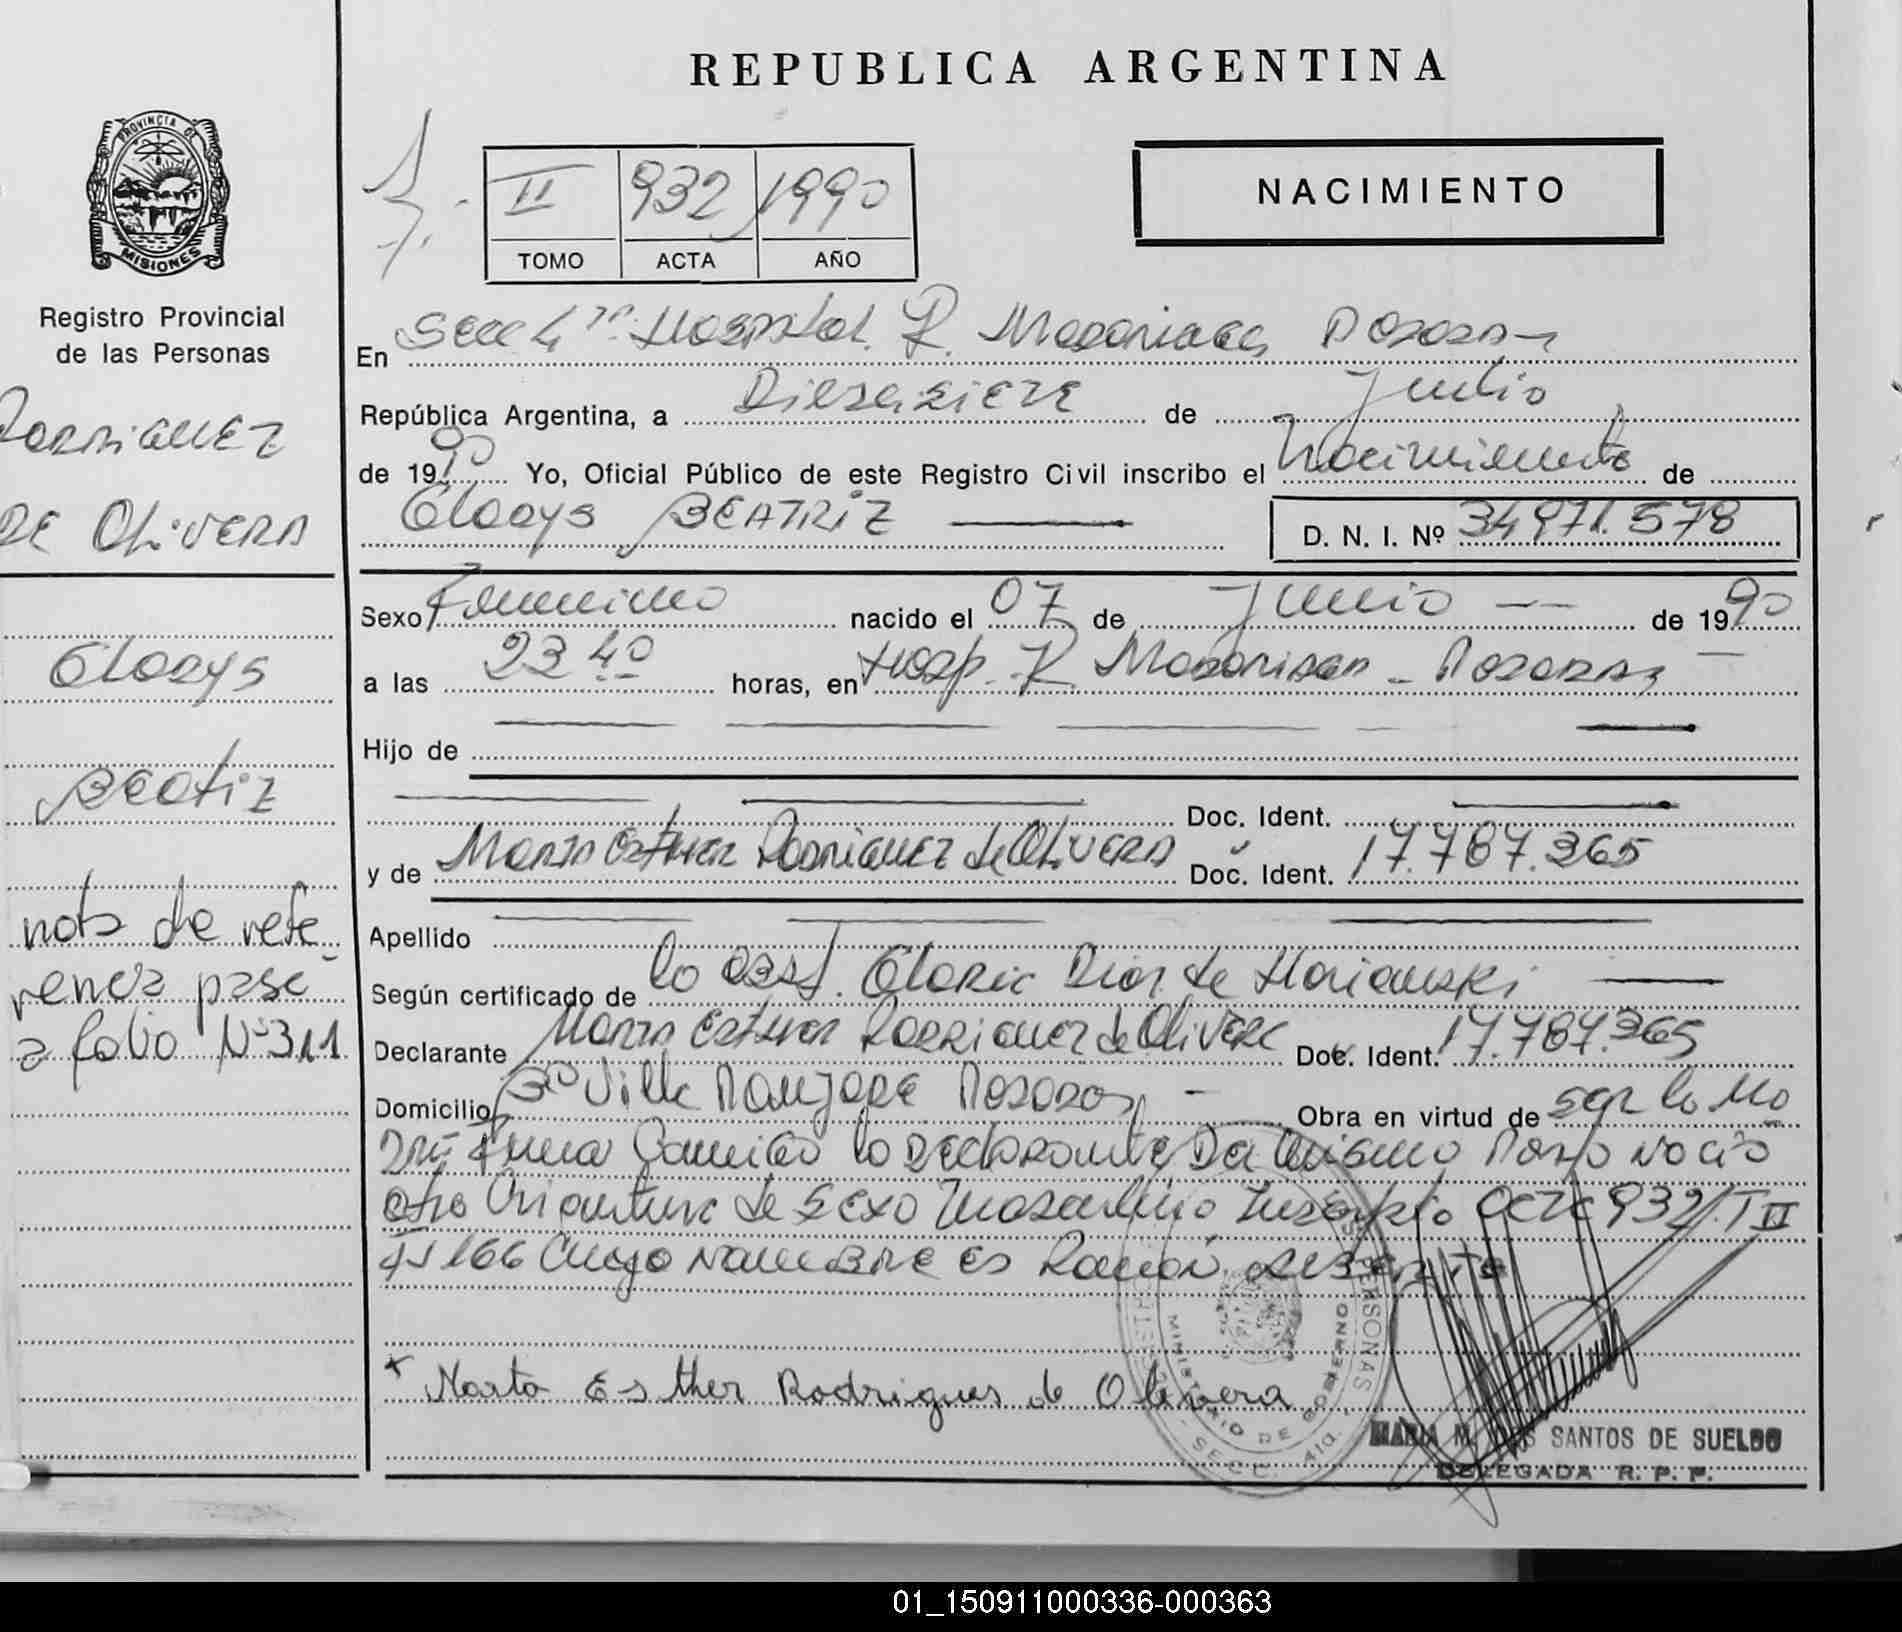 REPUBLICA ARGENTINA
PROVINCIA DE
MISIONES
Registro Provincial
de las Personas
Rodriguez
de Olivera
Gladys
Beatriz
nota de refe
rencia pase
a folio Nº 311
II 932 1990
TOMO ACTA AÑO
NACIMIENTO
En Secc 4ta. Hospital R. Madariaga Posadas
República Argentina, a Diecisiete de Julio
de 1990 Yo, Oficial Público de este Registro Civil inscribo el Nacimiento de
Gladys BEATRIZ D. N. I. Nº 34971.578
Sexo Femenino nacido el 07 de Junio de 1990
a las 23 40 horas, en Hosp. R. Madariaga - Posadas
Hijo de
Doc. Ident.
y de Maria Esther Rodriguez de Olivera Doc. Ident. 17.787.365
Apellido
Según certificado de la obst. Gloria Diaz de
Declarante Maria Esther Rodriguez de Olivera Doc. Ident. 17.787.365
Domicilio Villa Posadas Obra en virtud de
Firma la Declarante Del Mismo Parto Nació
otra Criatura de Sexo Masculino Inscripto Acta 932 T II
166 Cuyo Nombre es Ramón
* Marta Esther Rodrigues de Olivera
MINISTERIO DE GOBIERNO
PERSONAS
SECC. 4ta.
MARIA M. DOS SANTOS DE SUELDO
DELEGADA R. P. P.
01_150911000336-000363